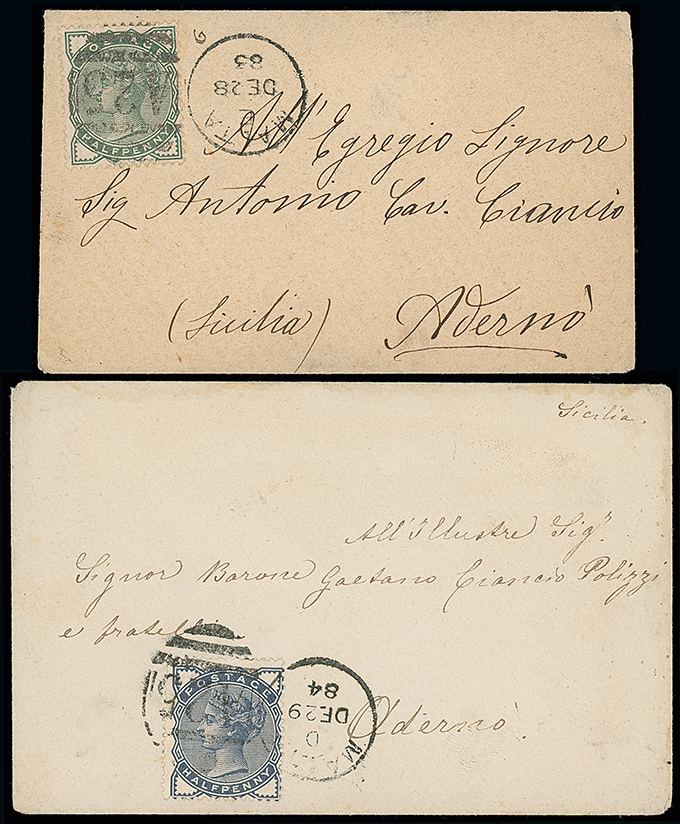 POSTAGE
HALFPENNY
A25
G
MALTA
DE 28
83
All' Egregio Signore
Sig Antonio Cav. Ciancio
(Sicilia) Adernò
Sicilia.
All'Illustre Sigr.
Signor Barone Gaetano Ciancio Polizzi
e fratelli
POSTAGE
HALFPENNY
MALTA
D
DE 29
84
Adernò